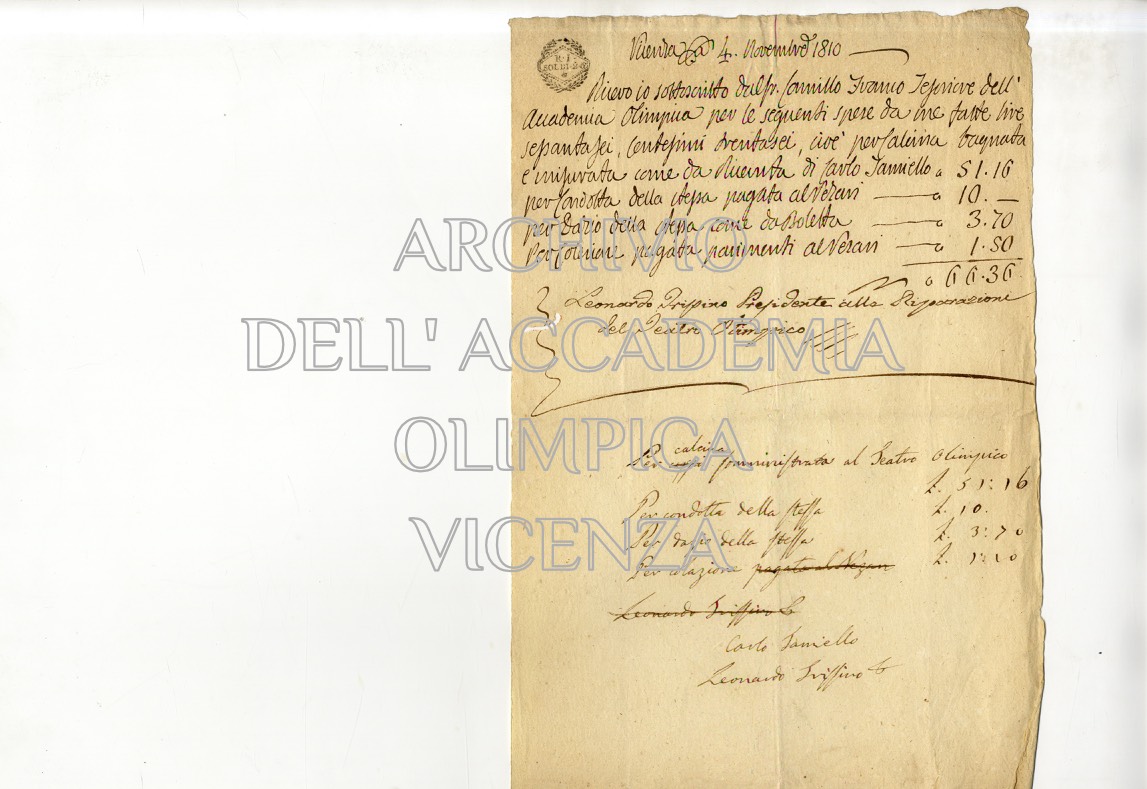 R. I.
SOLDI
Vicenza 4. Novembre 1810
Ricevo io sottoscritto dal Sr. Camillo Franco Tesoriere dell'
Accademia Olimpica per le seguenti spese da me fatte lire
sessantasei, Centesimi trentasei, cioè per Calcina bagnata
e misurata come da Ricevuta di Carlo Taniello " 51.16
per Condotta della stessa pagata al Vezari " 10. —
per Dazio della stessa come da Boletta " 3.70
Per pagata parimenti al Vezari " 1.50
" 66.36
Leonardo Trissino Presidente alla Riparazione
del Teatro Olimpico
calcina
Per somministrata al Teatro Olimpico
L. 51:16
Per condotta della stessa L. 10.
Per dazio della stessa L. 3:70
Per colazione pagata al Vezari L.
Leonardo Trissino
Carlo Taniello
Leonardo Trissino
ARCHIVIO
DELL' ACCADEMIA
OLIMPICA
VICENZA